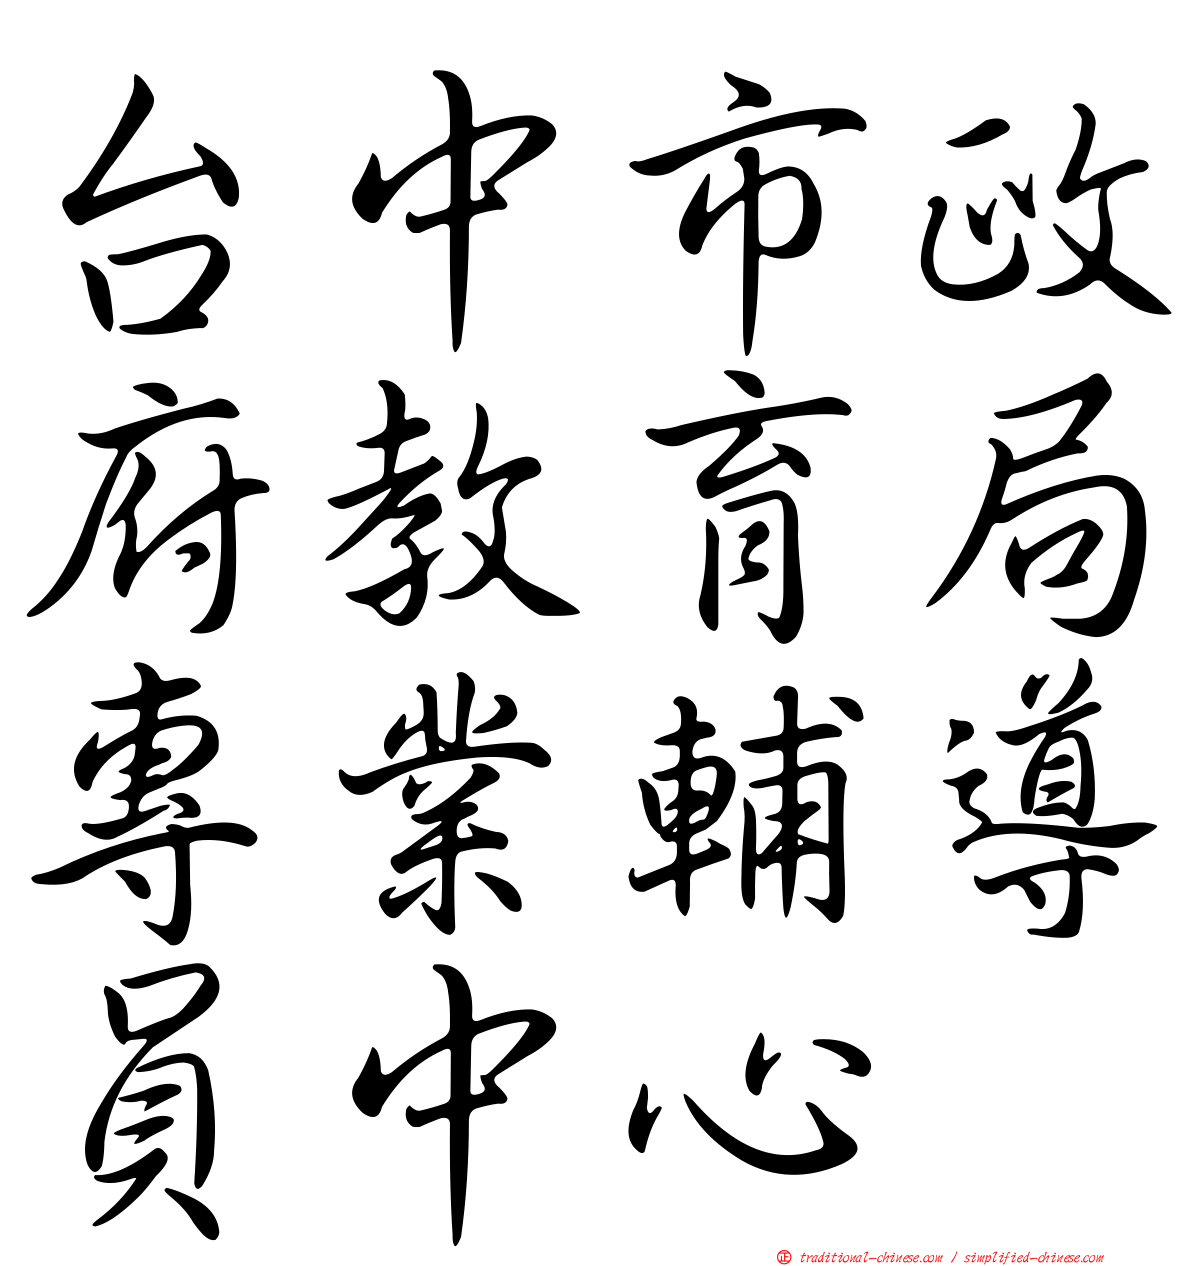 台中市政
府教育局
專業輔導
員中心
正 traditional-chinese.com / simplified-chinese.com